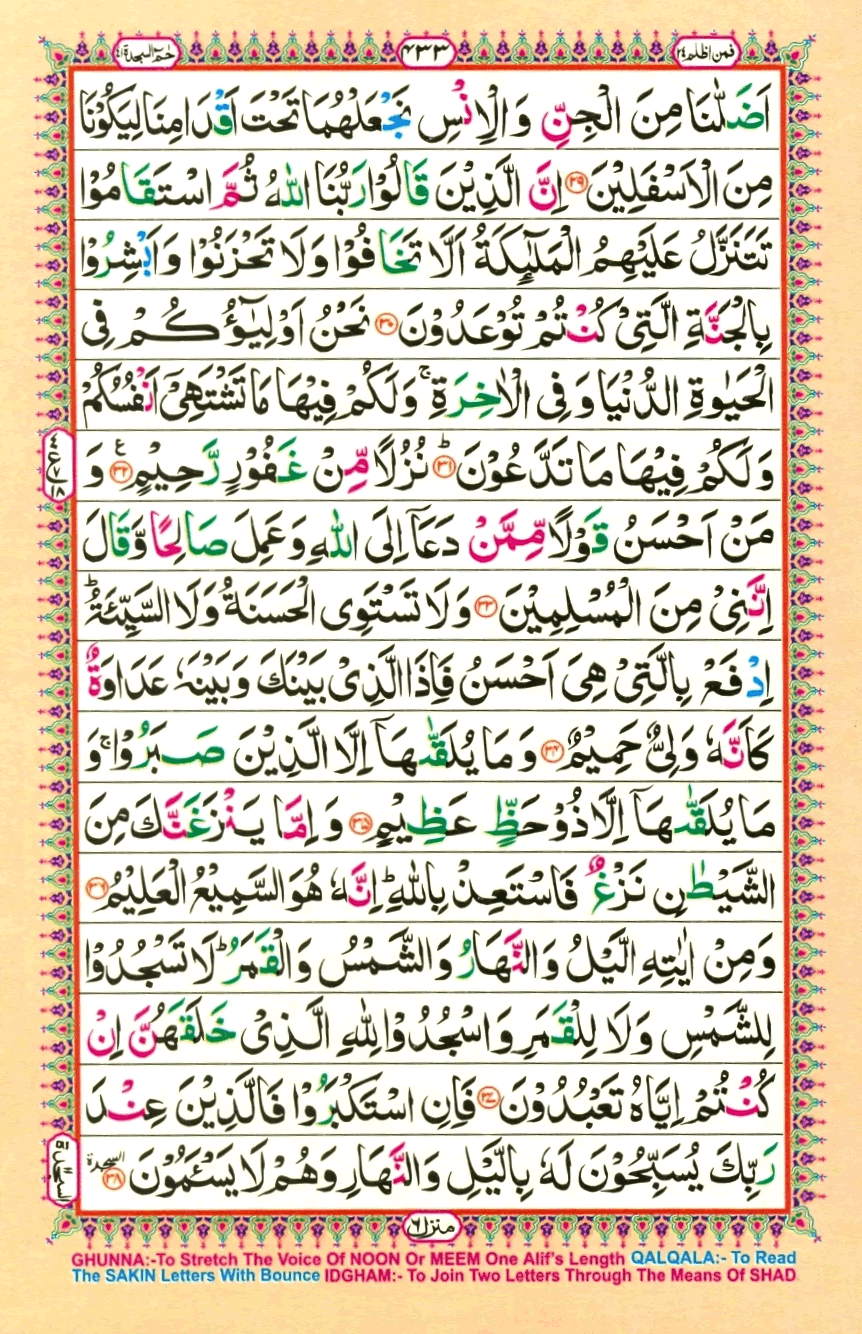 فمن اظلم ٢٤ ٤٣٣ حٰمٓ السجدة ٤١
اَضَلّٰنَا مِنَ الْجِنِّ وَ الْاِنْسِ نَجْعَلْهُمَا تَحْتَ اَقْدَامِنَا لِيَكُوْنَا
مِنَ الْاَسْفَلِيْنَ ﴿٢٩﴾ اِنَّ الَّذِيْنَ قَالُوْا رَبُّنَا اللّٰهُ ثُمَّ اسْتَقَامُوْا
تَتَنَزَّلُ عَلَيْهِمُ الْمَلٰٓئِكَةُ اَلَّا تَخَافُوْا وَ لَا تَحْزَنُوْا وَ اَبْشِرُوْا
بِالْجَنَّةِ الَّتِيْ كُنْتُمْ تُوْعَدُوْنَ ﴿٣٠﴾ نَحْنُ اَوْلِيٰٓؤُكُمْ فِي
الْحَيٰوةِ الدُّنْيَا وَ فِي الْاٰخِرَةِ ۚ وَ لَكُمْ فِيْهَا مَا تَشْتَهِيْٓ اَنْفُسُكُمْ
وَ لَكُمْ فِيْهَا مَا تَدَّعُوْنَ ؕ﴿٣١﴾ نُزُلًا مِّنْ غَفُوْرٍ رَّحِيْمٍ ﴿٣٢﴾ ع وَ
مَنْ اَحْسَنُ قَوْلًا مِّمَّنْ دَعَآ اِلَى اللّٰهِ وَ عَمِلَ صَالِحًا وَّ قَالَ
اِنَّنِيْ مِنَ الْمُسْلِمِيْنَ ﴿٣٣﴾ وَ لَا تَسْتَوِي الْحَسَنَةُ وَ لَا السَّيِّئَةُ ؕ
اِدْفَعْ بِالَّتِيْ هِيَ اَحْسَنُ فَاِذَا الَّذِيْ بَيْنَكَ وَ بَيْنَهٗ عَدَاوَةٌ
كَاَنَّهٗ وَلِيٌّ حَمِيْمٌ ﴿٣٤﴾ وَ مَا يُلَقّٰىهَآ اِلَّا الَّذِيْنَ صَبَرُوْا ۚ وَ
مَا يُلَقّٰىهَآ اِلَّا ذُوْ حَظٍّ عَظِيْمٍ ﴿٣٥﴾ وَ اِمَّا يَنْزَغَنَّكَ مِنَ
الشَّيْطٰنِ نَزْغٌ فَاسْتَعِذْ بِاللّٰهِ ؕ اِنَّهٗ هُوَ السَّمِيْعُ الْعَلِيْمُ ﴿٣٦﴾
وَ مِنْ اٰيٰتِهِ الَّيْلُ وَ النَّهَارُ وَ الشَّمْسُ وَ الْقَمَرُ ؕ لَا تَسْجُدُوْا
لِلشَّمْسِ وَ لَا لِلْقَمَرِ وَ اسْجُدُوْا لِلّٰهِ الَّذِيْ خَلَقَهُنَّ اِنْ
كُنْتُمْ اِيَّاهُ تَعْبُدُوْنَ ﴿٣٧﴾ فَاِنِ اسْتَكْبَرُوْا فَالَّذِيْنَ عِنْدَ
رَبِّكَ يُسَبِّحُوْنَ لَهٗ بِالَّيْلِ وَ النَّهَارِ وَ هُمْ لَا يَسْـَٔمُوْنَ ﴿٣٨﴾ السجدة
منزل ٦
GHUNNA:-To Stretch The Voice Of NOON Or MEEM One Alif's Length QALQALA:- To Read
The SAKIN Letters With Bounce IDGHAM:- To Join Two Letters Through The Means Of SHAD